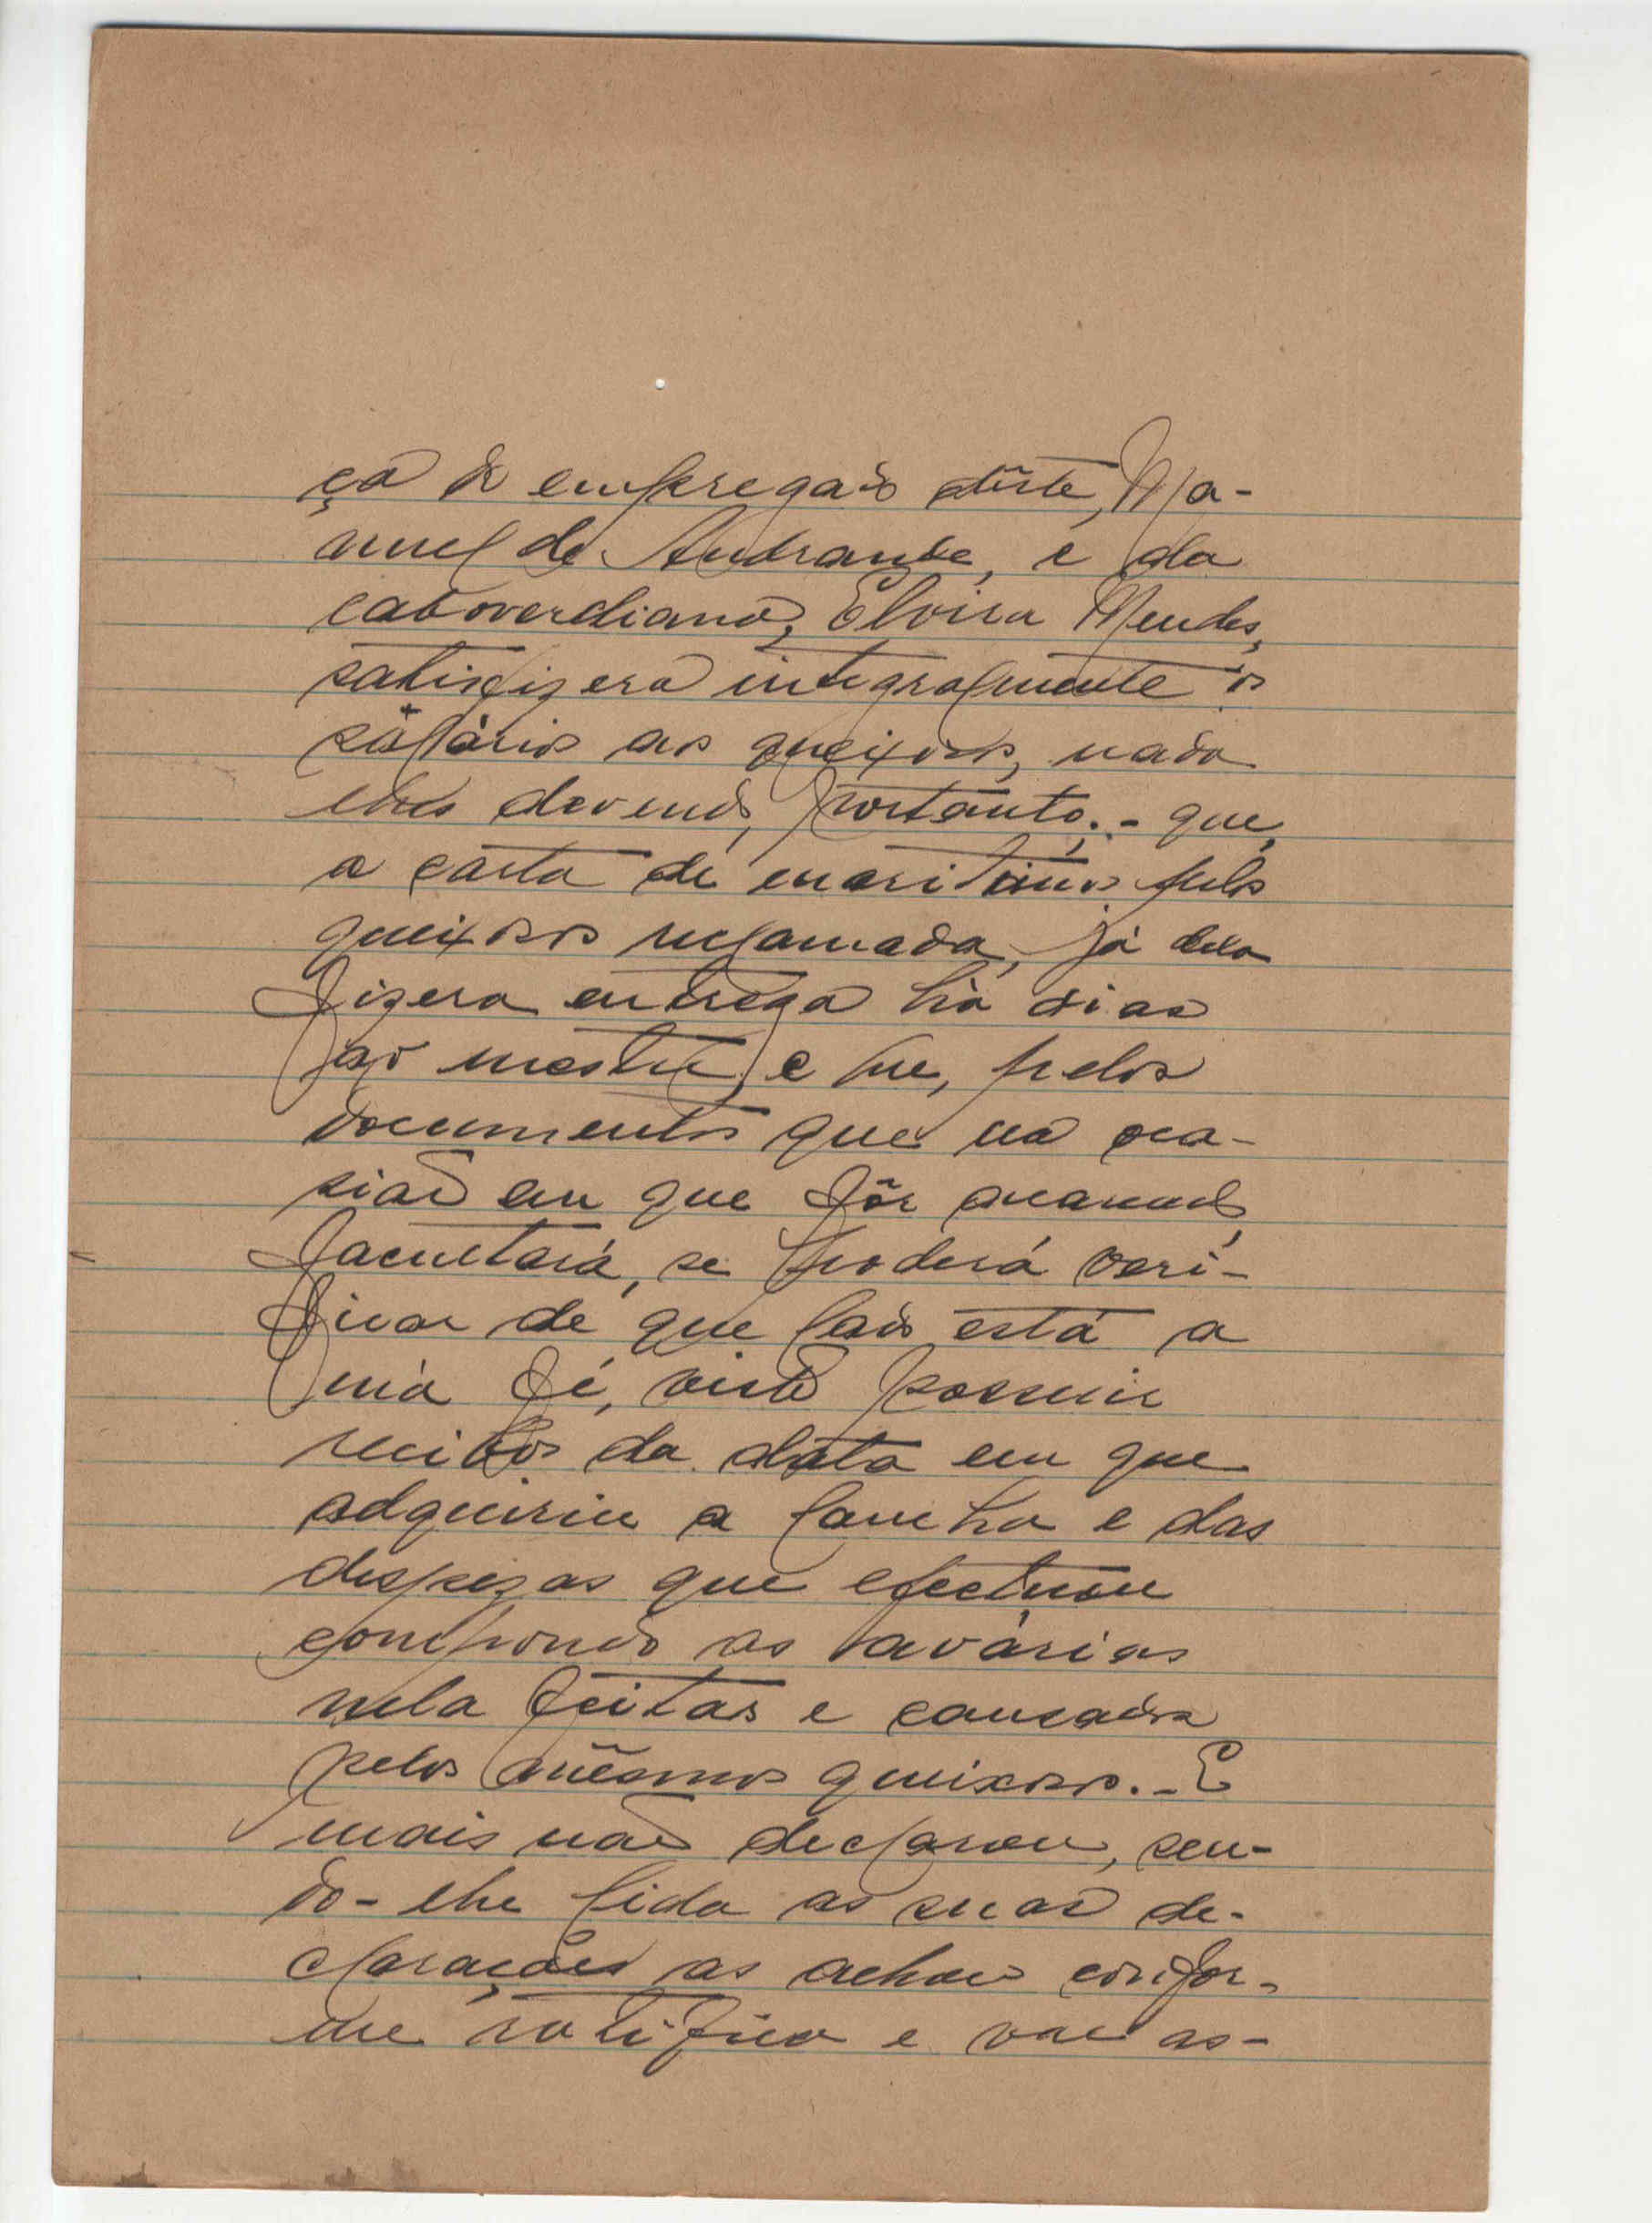 ça do empregado dêste, Ma-
nuel de Andrande, e da
caboverdiana, Elvira Mendes,
satisfizera integralmente os
salários aos queixosos, nada
lhes devendo, portanto; - que,
a carta de maritimos pelos
queixosos reclamada, já dela
fizera entrega há dias
ao mestre e que, pelos
documentos que na oca-
sião em que fôr
facultará, se poderá veri-
ficar de que lado está a
má fé, visto possuir
recibos da data em que
adquiriu a lancha e das
despezas que efectuou
compondo as avárias
nela feitas e causadas
pelos mêsmos queixosos. - E
mais não declarou, sen-
do-lhe lida as suas de-
clarações as achou confor-
me ratifica e vae as-